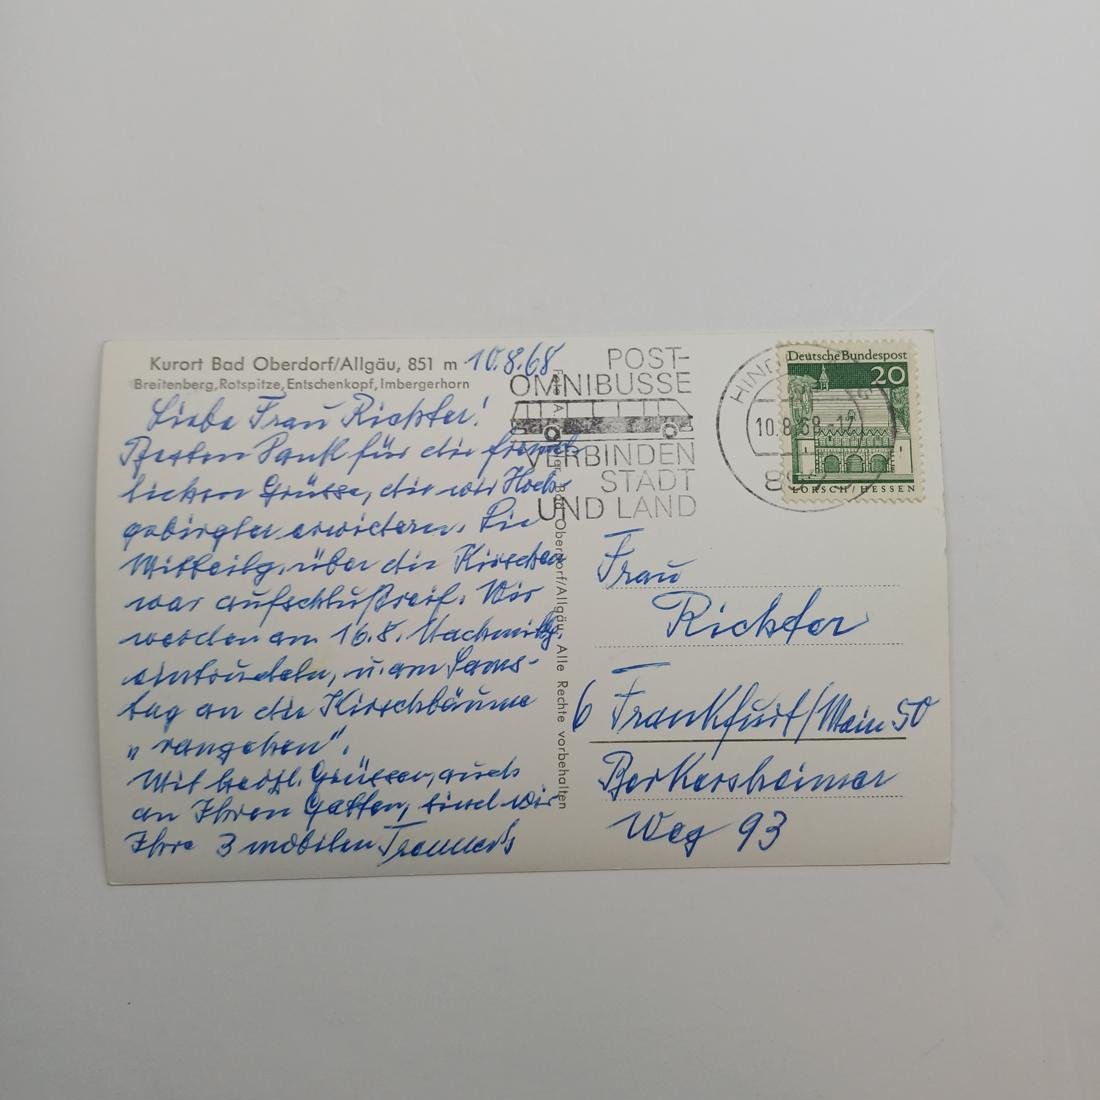 Kurort Bad Oberdorf/Allgäu, 851 m 10.8.68
Breitenberg, Rotspitze, Entschenkopf, Imbergerhorn
Liebe Frau Richter!
Besten Dank für die freund-
lichen Grüsse, die wir Hoch-
gebirgler erwidern. Die
Mitteilg. über die Kirschen
war aufschlußreif. Wir
werden am 16.8. Nachmittg.
eintrudeln, u. am Sams-
tag an die Kirschbäume
"rangehen".
Mit herzl. Grüssen, auch
an Ihren Gatten, sind wir
Ihre 3 mobilen
Bad Oberdorf/Allgäu. Alle Rechte vorbehalten
POST-
OMNIBUSSE
VERBINDEN
STADT
UND LAND
10.8.68-12
Deutsche Bundespost
20
LORSCH/HESSEN
Frau
Richter
6 Frankfurt/Main 50
Berkersheimer
Weg 93